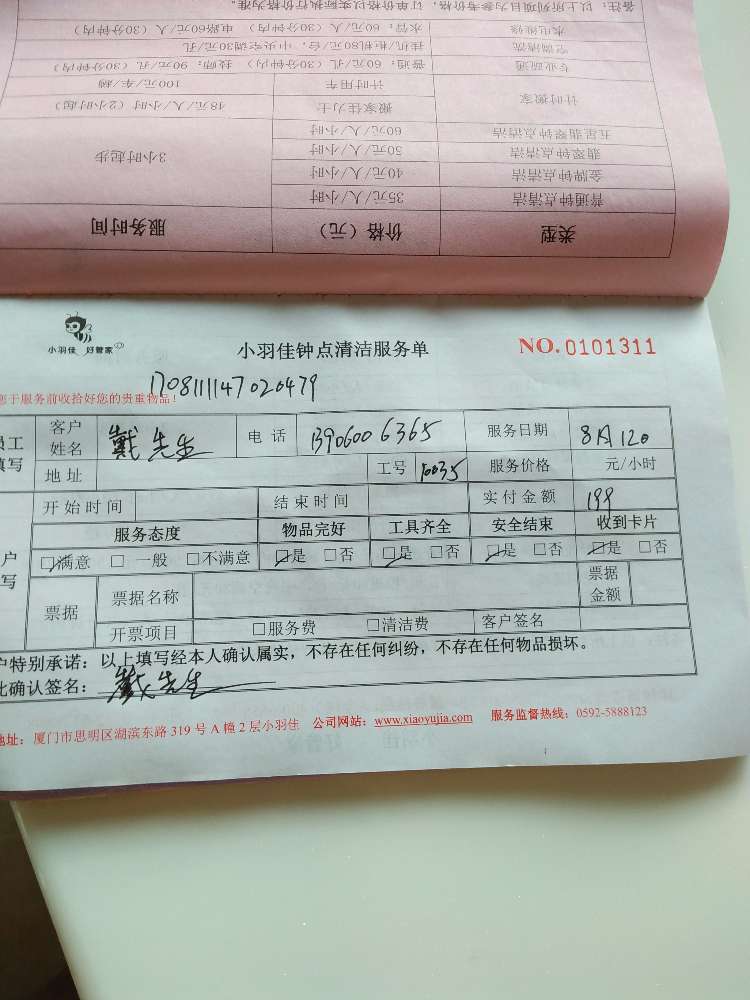 类型 价格（元） 服务时间
普通钟点清洁 35元/人/小时 3小时起步
金牌钟点清洁 40元/人/小时
翡翠钟点清洁 50元/人/小时
五星翡翠钟点清洁 60元/人/小时
计时搬家 搬家佳力士 48元/人/小时（2小时起）
计时用车 100元/车/辆
专业疏通 普通：60元/孔（30分钟内） 技师：90元/孔（30分钟内）
空调清洗 挂机/柜机80元/台，中央空调30元/孔
水电维修 水管：60元/人（30分钟内） 电路60元/人（30分钟内）
备注：以上所列项目为参考价格，订单价格以实际执行价格为准。
小羽佳 好管家
小羽佳钟点清洁服务单
NO.0101311
1708111147020479
您于服务前收拾好您的贵重物品！
员工填写 客户姓名 戴先生 电话 13906006365 服务日期 8月12日
地址 工号 10035 服务价格 元/小时
开始时间 结束时间 实付金额 199
服务态度 物品完好 工具齐全 安全结束 收到卡片
☑满意 □一般 □不满意 ☑是 □否 ☑是 □否 ☑是 □否 ☑是 □否
户写 票据 票据名称 票据金额
开票项目 □服务费 □清洁费 客户签名
户特别承诺：以上填写经本人确认属实，不存在任何纠纷，不存在任何物品损坏。
此确认签名：戴先生
地址：厦门市思明区湖滨东路319号A幢2层小羽佳 公司网站：www.xiaoyujia.com 服务监督热线：0592-5888123